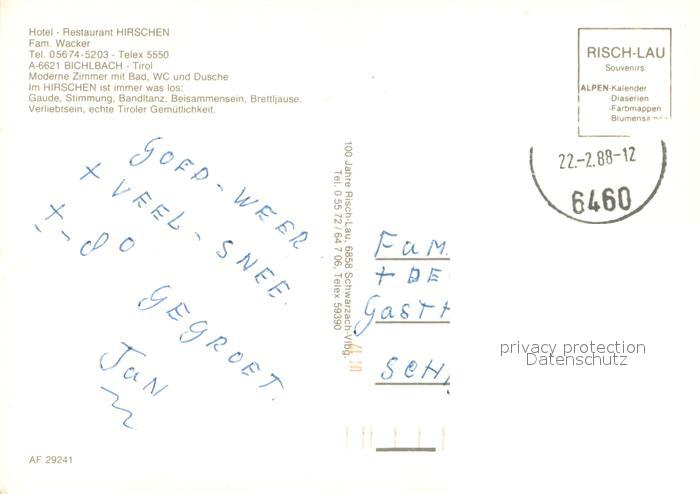 Hotel - Restaurant HIRSCHEN
Fam. Wacker
Tel. 05674-5203 - Telex 5550
A-6621 BICHLBACH - Tirol
Moderne Zimmer mit Bad, WC und Dusche
Im HIRSCHEN ist immer was los:
Gaude, Stimmung, Bandltanz, Beisammensein, Brettljause.
Verliebtsein, echte Tiroler Gemütlichkeit.
GOED-WEER
+ VEEL-SNEE.
GEGROET.
JAN
AF 29241
100 Jahre Risch-Lau, 6858 Schwarzach-Vlbg.
Tel. 0 55 72 / 64 7 06, Telex 59390
RISCH-LAU
Souvenirs:
ALPEN-Kalender
-Diaserien
-Farbmappen
22.-2.88-12
6460
FAM.
+ DE
GASTH
SCH
privacy protection
Datenschutz